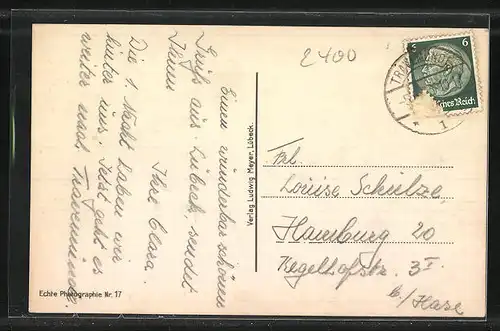 2400
Einen wunderbar schönen
Gruß aus Lübeck sendet
Ihnen
Ihre Clara.
Die 1. Nacht haben wir
hinter uns. Jetzt geht es
weiter nach Travemünde.
Verlag Ludwig Meyer, Lübeck.
Echte Photographie Nr. 17
6
ches Reich
TRAV
* 1
Frl.
Louise Schultze,
Hamburg 20
Kegelhofstr. 3 I
b/ Hase